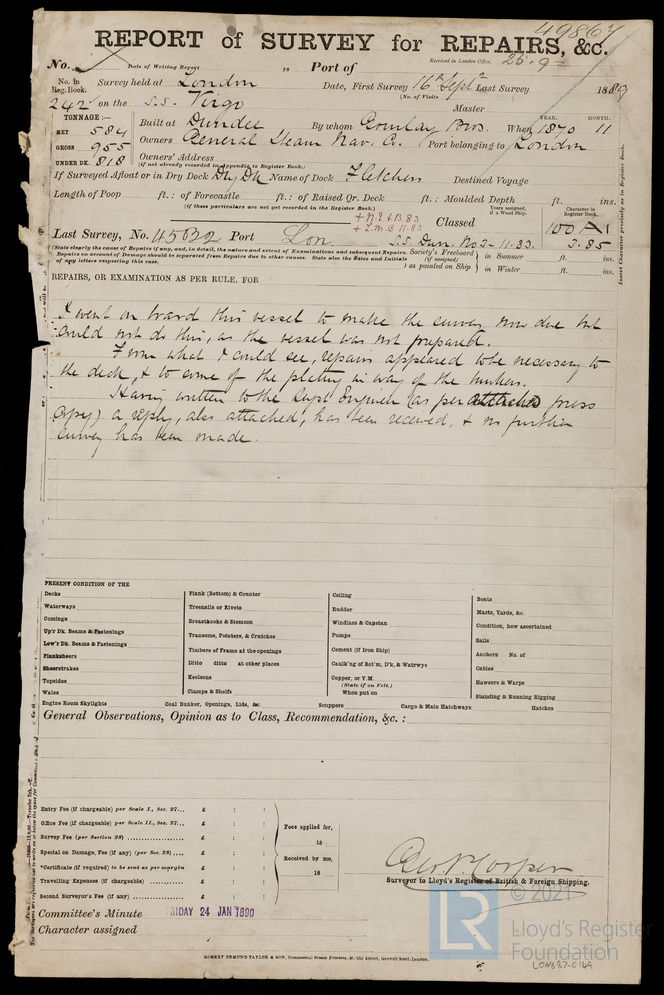 49867
REPORT of SURVEY for REPAIRS, &c.
No. Date of Writing Report 18 Port of Received in London Office, 25-9-
No. in Reg. Book. Survey held at London Date, First Survey 16th Sept. Last Survey 1889
(No. of Visits
242 on the S.S. Virgo Master
TONNAGE:— YEAR. MONTH.
NET 584 Built at Dundee By whom Gourlay Bros. When 1870 11
GROSS 955 Owners General Steam Nav. Co. Port belonging to London
UNDER DK. 818 Owners' Address
(if not already recorded in Appendix to Register Book.)
If Surveyed Afloat or in Dry Dock Dry Dk Name of Dock Fletchers Destined Voyage
Length of Poop ft.: of Forecastle ft.: of Raised Qr. Deck ft.: Moulded Depth ft. ins.
(If these particulars are not yet recorded in the Register Book.)
Years assigned, if a Wood Ship.
Character in Register Book.
+ N.E. & B. 83
+ L.M.C. 11.83
Classed 100 A1
Last Survey, No. 45032 Port Lon. S.S. Dun. No 2-11.83. 3.85
(State clearly the cause of Repairs if any, and, in detail, the nature and extent of Examinations and subsequent Repairs.
Repairs on account of Damage should be separated from Repairs due to other causes. State also the Dates and Initials
of any letters respecting this case.
Society's Freeboard (if assigned) as painted on Ship in Summer ft. ins.
in Winter ft. ins.
Insert Character precisely as in Register Book.
REPAIRS, OR EXAMINATION AS PER RULE, FOR
I went on board this vessel to make the survey now due but
could not do this, as the vessel was not prepared.
From what I could see, repairs appeared to be necessary to
the deck, & to some of the plating in way of the bunkers.
Having written to the Supt Engineer (as per attached press
copy) a reply, also attached, has been received, & no further
survey has been made.
PRESENT CONDITION OF THE
Decks
Waterways
Comings
Up'r Dk. Beams & Fastenings
Low'r Dk. Beams & Fastenings
Planksheers
Sheerstrakes
Topsides
Wales
Engine Room Skylights
Plank (Bottom) & Counter
Treenails or Rivets
Breasthooks & Stemson
Transoms, Pointers, & Crutches
Timbers of Frame at the openings
Ditto ditto at other places
Keelsons
Clamps & Shelfs
Coal Bunker, Openings, Lids, &c
Ceiling
Rudder
Windlass & Capstan
Pumps
Cement (if Iron Ship)
Caulk'ng of Bot'm, D'k, & Watrwys
Copper, or Y.M.
(State if on Felt.)
When put on
Scuppers
Cargo & Main Hatchways
Boats
Masts, Yards, &c.
Condition, how ascertained
Sails
Anchors No. of
Cables
Hawsers & Warps
Standing & Running Rigging
Hatches
General Observations, Opinion as to Class, Recommendation, &c. :
Entry Fee (if chargeable) per Scale I., Sec. 27... £ : :
Office Fee (if chargeable) per Scale II., Sec. 27... £ : :
Survey Fee (per Section 28) £ : :
Special on Damage, Fee (if any) (per Sec. 28).... £ : :
*Certificate (if required) to be sent as per margin £ : :
Travelling Expenses (if chargeable) £ : :
Second Surveyor's Fee (if any) £ : :
Fees applied for,
18
Received by me,
18
Geo. P. Cooper
Surveyor to Lloyd's Register of British & Foreign Shipping.
Committee's Minute FRIDAY 24 JAN 1890
Character assigned
ROBERT EDMUND TAYLOR & SON, Commercial Steam Printers, 19, Old Street, Goswell Road, London.
© 2021
LR
Lloyd's Register
Foundation
LON687-0149